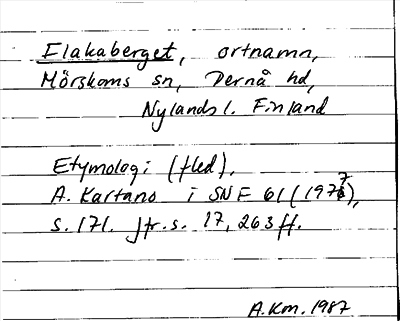 Flakaberget, ortnamn,
Mörskoms sn, Pernå hd,
Nylands l. Finland
Etymologi (fled).
A. Kartano i SNF 61 (1977),
s. 171. Jfr. s. 17, 263 ff.
A. Km. 1987